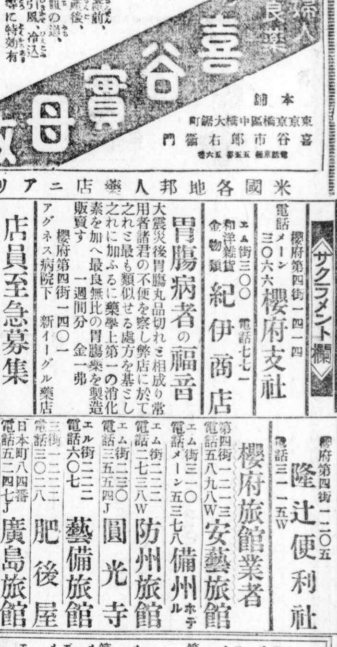 婦人
良薬
喜谷實母散
本舗
東京京橋區中橋大鋸町
喜谷市郎右衞門
米國各地邦人藥店ニアリ
サクラメント欄
櫻府第四街一四一四
電話メーン三〇六六
櫻府支社
エム街三〇〇 電話七七一
和洋雜貨
金物類
紀伊商店
胃腸病者の福音
大震災後胃腸丸品切れと相成り常
用者諸君の不便を察し弊店に於て
之れと最も類似せる處方を基とし
之れに加ふるに藥學上第一の消化
素を加へ最良無比の胃腸藥を製造
販賣す 一週間分 金一弗
櫻府第四街一四〇一
アグネス病院下 新イーグル藥店
店員至急募集
櫻府第四街一二〇五
隆辻便利社
電話三一一五W
櫻府旅館業者
第四街一二一三
電話五八九八W
安藝旅館
エム街三一〇
電話メーン五三七八
備州ホテル
エム街二二二
電話一七三八W
防州旅館
エム街二三〇
電話三五五四J
圓光寺
エル街二二二
電話六〇七
藝備旅館
三街一二一二
電話三〇二八
肥後屋
日本町八四番
電話五二四七J
廣島旅館